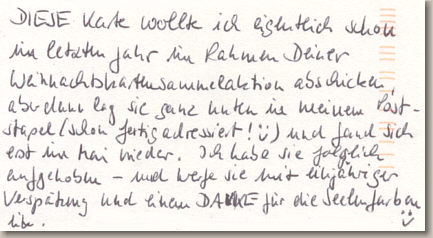 DIESE Karte wollte ich eigentlich schon
im letzten Jahr im Rahmen Deiner
Weihnachtskartensammelaktion abschicken,
aber dann lag sie ganz unten in meinem Post-
stapel (schon fertig adressiert! :)) und fand sich
erst im Mai wieder. Ich habe sie folglich
aufgehoben – und werfe sie mit einjähriger
Verspätung und einem DANKE für die Seelenfarben
ein. :)